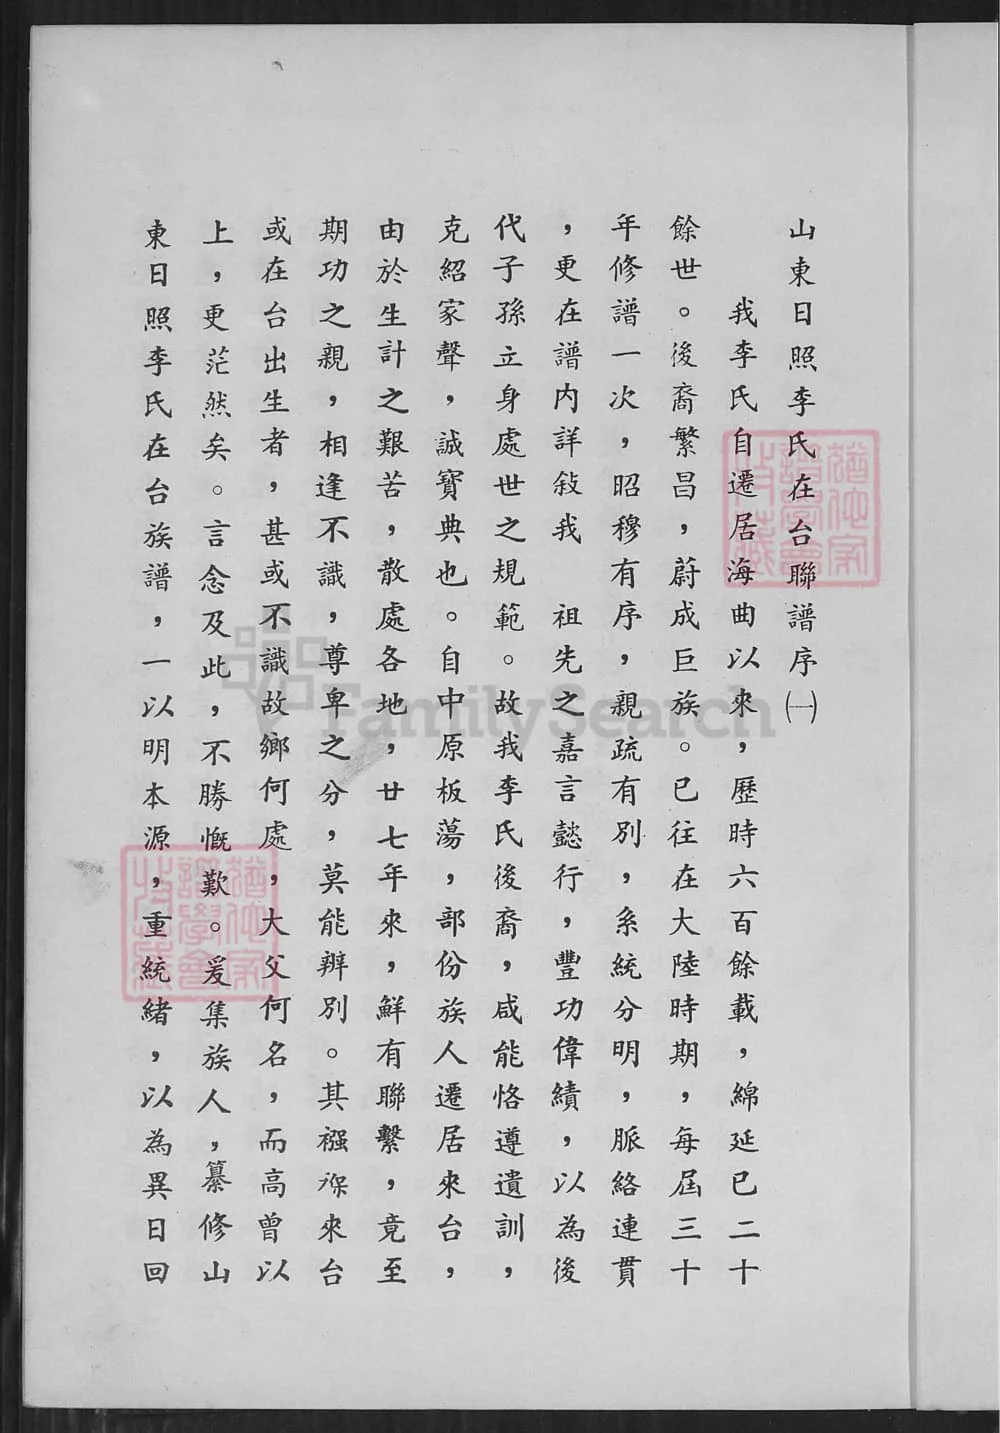 山東日照李氏在台聯譜序㈠
我李氏自遷居海曲以來，歷時六百餘載，綿延已二十
餘世。後裔繁昌，蔚成巨族。已往在大陸時期，每屆三十
年修譜一次，昭穆有序，親疏有別，系統分明，脈絡連貫
，更在譜內詳敍我　祖先之嘉言懿行，豐功偉績，以為後
代子孫立身處世之規範。故我李氏後裔，咸能恪遵遺訓，
克紹家聲，誠寶典也。自中原板蕩，部份族人遷居來台，
由於生計之艱苦，散處各地，廿七年來，鮮有聯繫，竟至
期功之親，相逢不識，尊卑之分，莫能辨別。其襁褓來台
或在台出生者，甚或不識故鄉何處，大父何名，而高曾以
上，更茫然矣。言念及此，不勝慨歎。爰集族人，纂修山
東日照李氏在台族譜，一以明本源，重統緒，以為異日回
FamilySearch